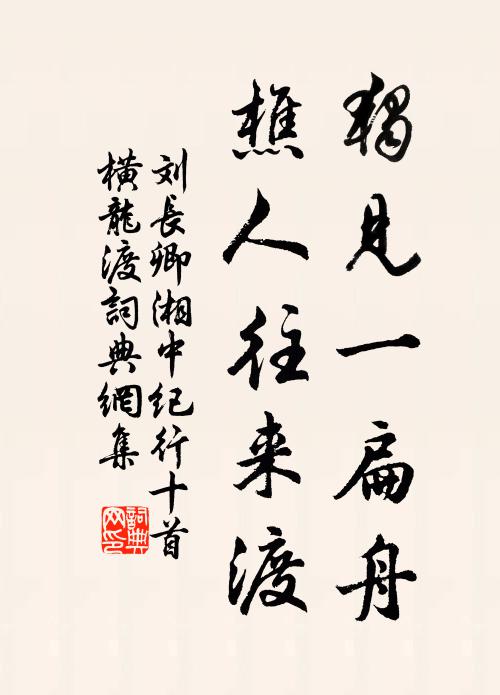 獨見一扁舟
樵人往来渡
刘長卿湘中纪行十首
橫龍渡詞典網集
詞典网印